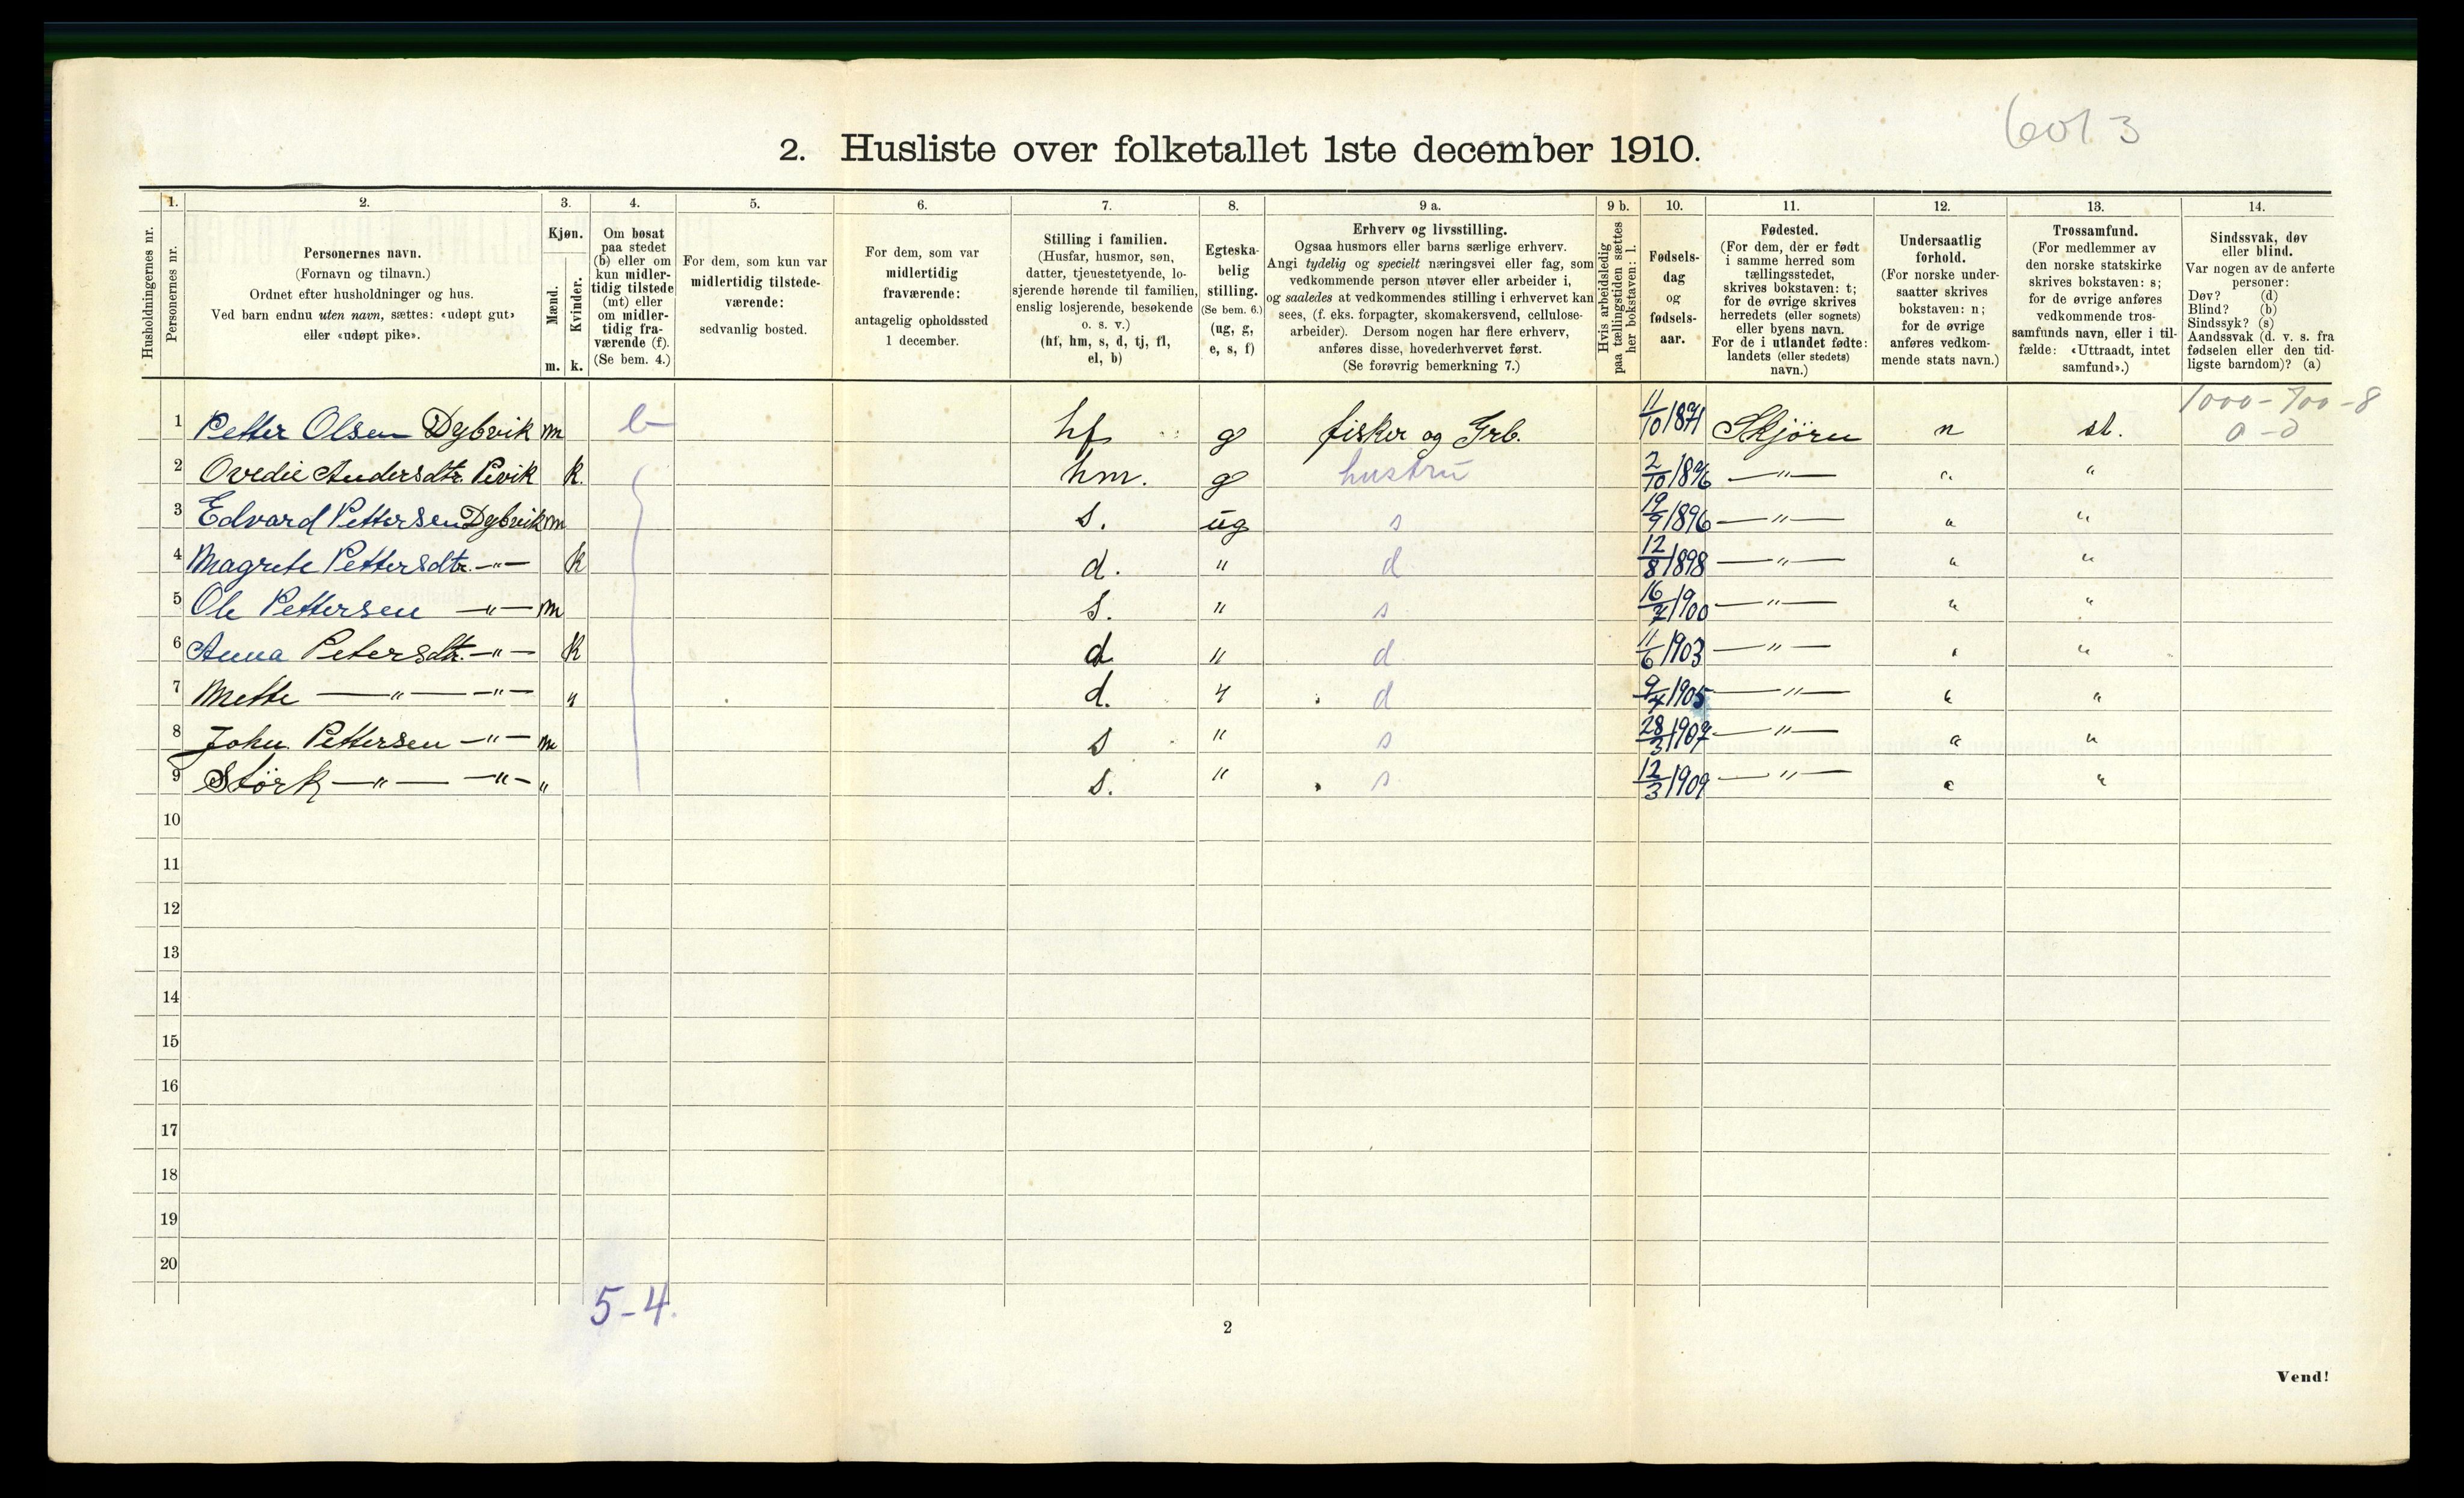 6013
2. Husliste over folketallet 1ste december 1910.
Husholdningernes nr.
1.
Personernes nr.
2.
Personernes navn.
(Fornavn og tilnavn.)
Ordnet efter husholdninger og hus.
Ved barn endnu uten navn, sættes: «udøpt gut»
eller «udøpt pike».
3.
Kjøn.
Mænd.
Kvinder.
m. k.
4.
Om bosat
paa stedet
(b) eller om
kun midler-
tidig tilstede
(mt) eller
om midler-
tidig fra-
værende (f).
(Se bem. 4.)
5.
For dem, som kun var
midlertidig tilstede-
værende:
sedvanlig bosted.
6.
For dem, som var
midlertidig
fraværende:
antagelig opholdssted
1 december.
7.
Stilling i familien.
(Husfar, husmor, søn,
datter, tjenestetyende, lo-
sjerende hørende til familien,
enslig losjerende, besøkende
o. s. v.)
(hf, hm, s, d, tj, fl,
el, b)
8.
Egteska-
belig
stilling.
(Se bem. 6.)
(ug, g,
e, s, f)
9 a.
Erhverv og livsstilling.
Ogsaa husmors eller barns særlige erhverv.
Angi tydelig og specielt næringsvei eller fag, som
vedkommende person utøver eller arbeider i,
og saaledes at vedkommendes stilling i erhvervet kan
sees, (f. eks. forpagter, skomakersvend, cellulose-
arbeider). Dersom nogen har flere erhverv,
anføres disse, hovederhvervet først.
(Se forøvrig bemerkning 7.)
9 b.
Hvis arbeidsledig
paa tællingstiden sættes
her bokstaven: l.
10.
Fødsels-
dag
og
fødsels-
aar.
11.
Fødested.
(For dem, der er født
i samme herred som
tællingsstedet,
skrives bokstaven: t;
for de øvrige skrives
herredets (eller sognets)
eller byens navn.
For de i utlandet fødte:
landets (eller stedets)
navn.)
12.
Undersaatlig
forhold.
(For norske under-
saatter skrives
bokstaven: n;
for de øvrige
anføres vedkom-
mende stats navn.)
13.
Trossamfund.
(For medlemmer av
den norske statskirke
skrives bokstaven: s;
for de øvrige anføres
vedkommende tros-
samfunds navn, eller i til-
fælde: «Uttraadt, intet
samfund».)
14.
Sindssvak, døv
eller blind.
Var nogen av de anførte
personer:
Døv? (d)
Blind? (b)
Sindssyk? (s)
Aandssvak (d. v. s. fra
fødselen eller den tid-
ligste barndom)? (a)
1000-700-8
0-0
1 Petter Olsen Dybvik m b hf g fisker og Grb. 11/10 1871 Skjörn n st.
2 Ovedie Andersdtr. Pevik k. hm. g hustru 2/10 1876 —"— " "
3 Edvard Pettersen Dybvik m s. ug s 19/9 1896 —"— " "
4 Magrete Pettersdtr. —"— k d. " d 12/8 1898 —"— " "
5 Ole Pettersen —"— m s. " s 16/7 1900 —"— " "
6 Anna Petersdtr. —"— k d " d 11/6 1903 —"— " "
7 Mette —"— —"— " d. " d 9/4 1905 —"— " "
8 John Pettersen —"— m s " s 28/3 1907 —"— " "
9 Störk —"— —"— " s. " s 12/3 1909 —"— " "
10
11
12
13
14
15
16
17
18
19
20
5-4.
2
Vend!